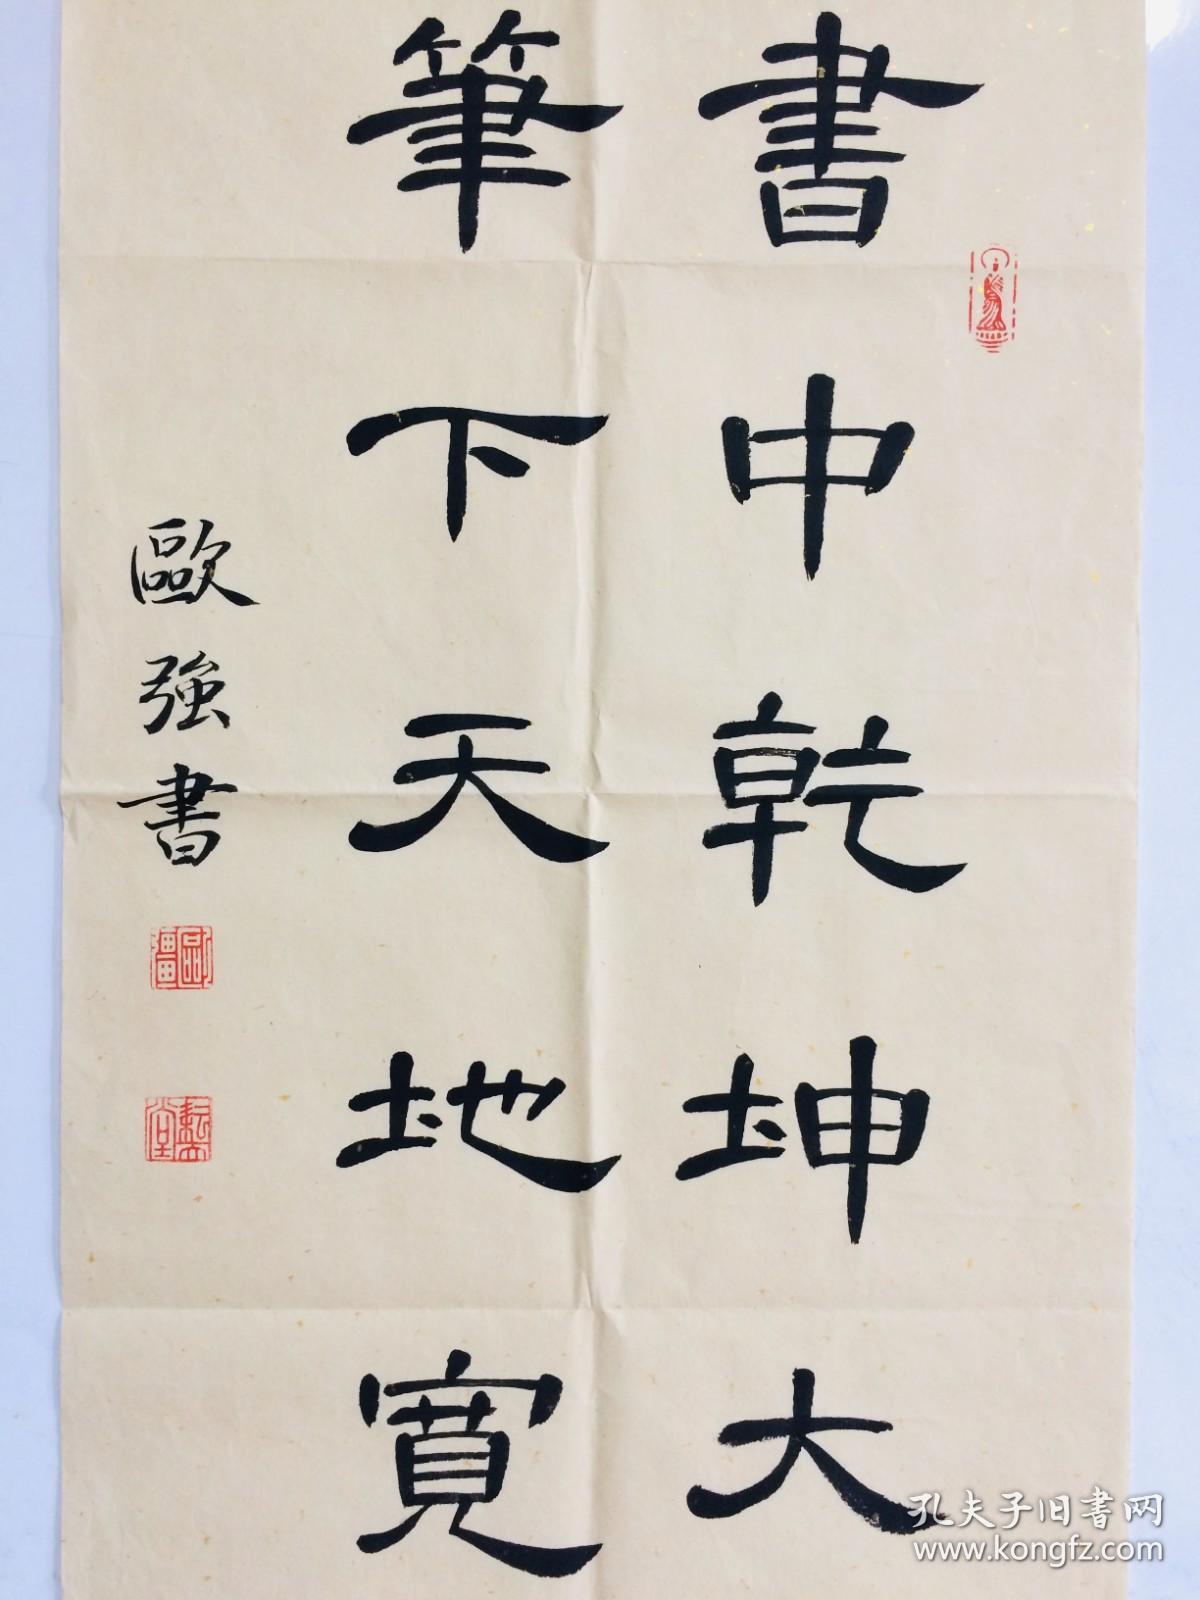 書中乾坤大
筆下天地寬
歐強書
歐彊
耘堂
孔夫子旧书网
www.kongfz.com